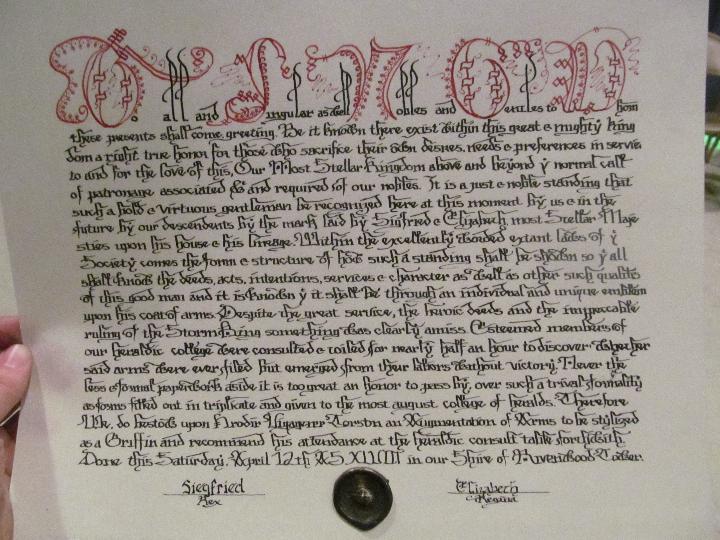 To all and Singular as well Nobles and Gentles to Whom
these presents shall come, greeting. Be it known there exist within this great & mighty King
dom a right true honor for those who sacrifice their own desires, needs & preferences in servic
to and for the love of this, Our Most Stellar Kingdom above and beyond y normal call
of patronage associated and required of our nobles. It is a just & noble standing that
such a bold & virtuous gentleman be recognized here at this moment by us & in the
future by our descendents by the mark laid by Sigfried & Elizabeth, most Stellar Maje
sties upon his house & his lineage. Within the excellently worded extant laws of y
Society comes the form & structure of how such a standing shall be shown so y all
shall know the deeds, acts, intentions, services & character as well as other such qualits
of this good man and it is known y it shall be through an individual and unique emblem
upon his coat of arms. Despite the great service, the heroic deeds and the impeccable
ruling of the Storm King something was clearly amiss. Esteemed members of
our heraldic college were consulted & toiled for nearly half an hour to discover whether
said arms were ever filed but emerged from their labors without victory. Never the
less & formal paperwork aside it is too great an honor to pass by, over such a trival formality
as forms filled out in triplicate and given to the most august college of heralds. Therefore
We, do bestow upon Brodir Torstn an Augmentation of Arms to be stylized
as a Griffin and recommend his attendance at the heraldic consult table forthwith.
Done this Saturday, April 12th in our Shire of Rivenwood Tower.
Siegfried Elizabeth
Rex Regina